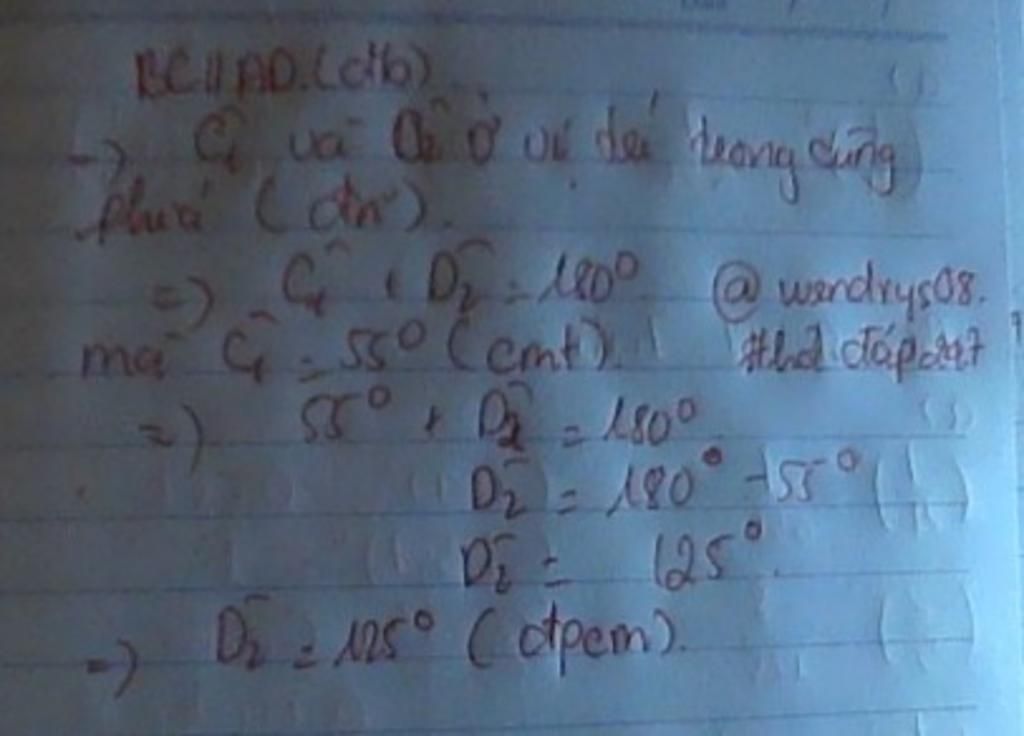 BC // AD. (đtb)
→ Ĉ₁ và D̂₂ ở vị trí trong cùng
phía (đn).
=> Ĉ₁ + D̂₂ = 180° @wendrys08.
mà Ĉ₁ = 55° (cmt).
=> 55° + D̂₂ = 180°
D̂₂ = 180° - 55°
D̂₂ = 125°.
=> D̂₂ = 125° (đpcm).